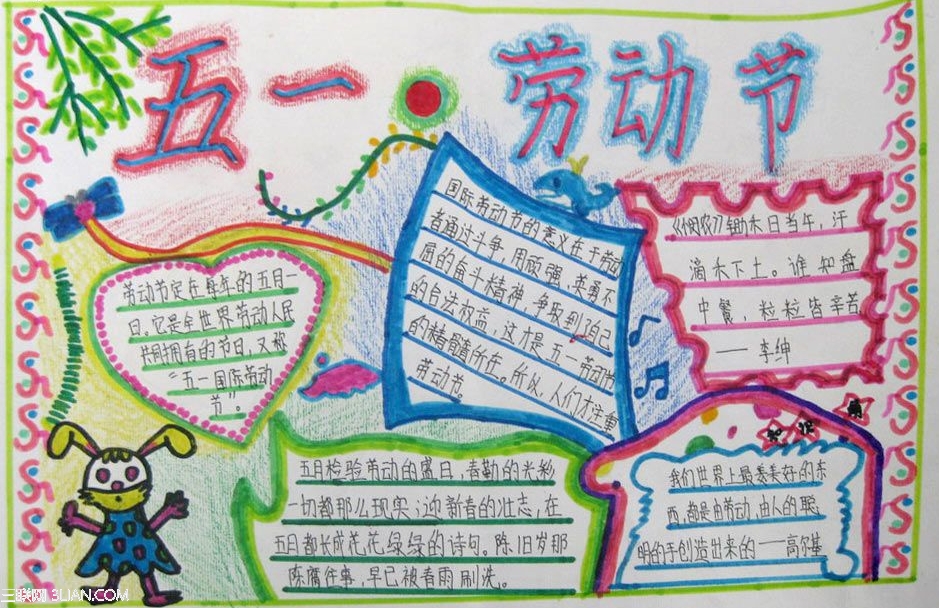 五一 劳动节
劳动节定在每年的五月一
日。它是全世界劳动人民
共同拥有的节日,又称
“五一国际劳动
节”。
国际劳动节的意义在于劳动
者通过斗争,用顽强、英勇不
屈的奋斗精神,争取到了自己
的合法权益,这才是五一劳动节
的精髓所在。所以,人们才注重
劳动节。
《悯农》锄禾日当午,汗
滴禾下土。谁知盘
中餐,粒粒皆辛苦
——李绅
五月检验劳动的盛日,春勤的光彩
一切都那么现实;迎新春的壮志,在
五月都长成花花绿绿的诗句。陈旧岁那
陈腐往事,早已被春雨刷洗。
我们世界上最美好的东
西,都是由劳动,由人的聪
明的手创造出来的——高尔基
三联网 3LIAN.COM